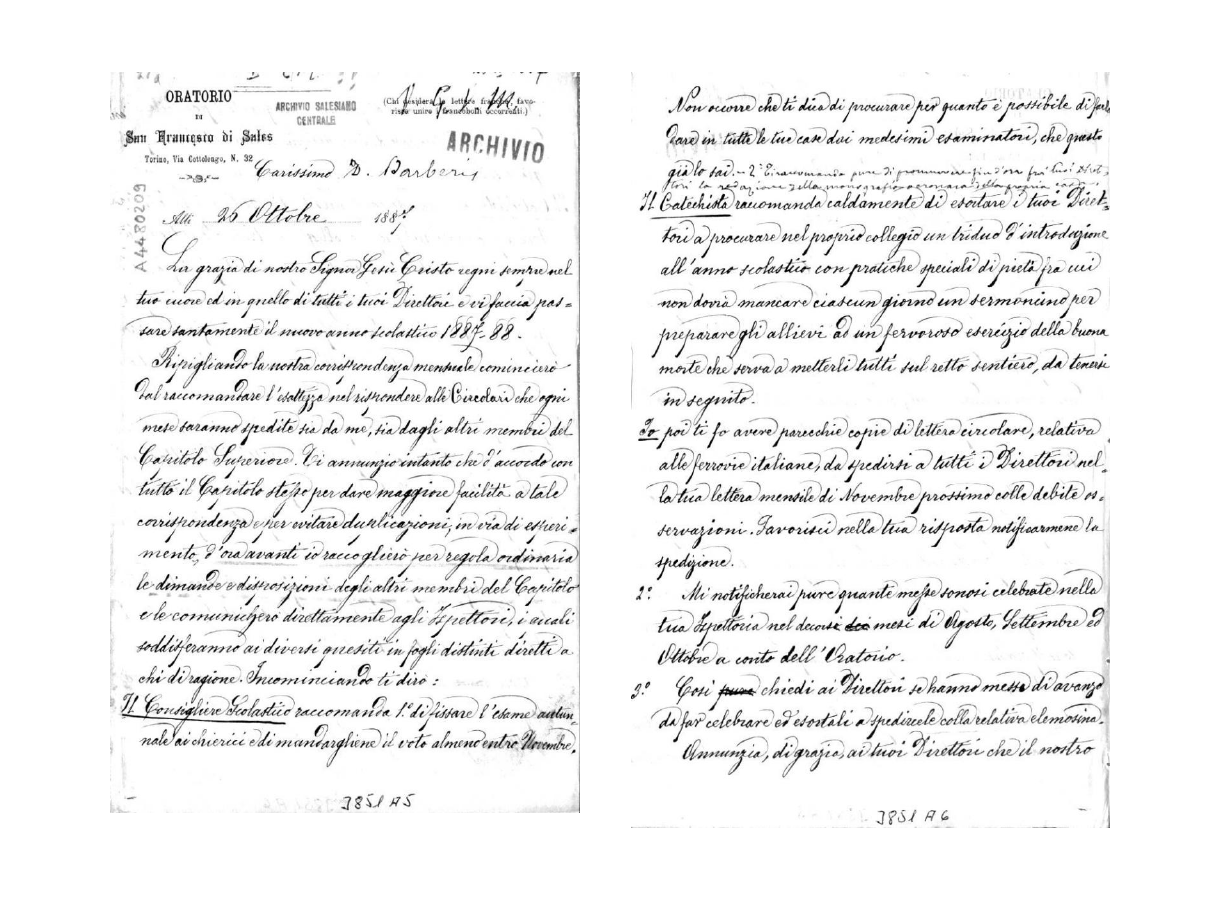 ORATORIO
DI
San Francesco di Sales
Torino, Via Cottolengo, N. 32
ARCHIVIO SALESIANO
CENTRALE
(Chi desidera le lettere franche, favo-
risca unire i francobolli occorrenti.)
ARCHIVIO
A4480209
Carissimo D. Barberis
Alli 26 Ottobre 1887
La grazia di nostro Signor Gesù Cristo regni sempre nel
tuo cuore ed in quello di tutti i tuoi Direttori e vi faccia pas=
sare santamente il nuovo anno scolastico 1887-88.
Ripigliando la nostra corrispondenza mensuale comincierò
dal raccomandare l'esattezza nel rispondere alle Circolari che ogni
mese saranno spedite sia da me, sia dagli altri membri del
Capitolo Superiore. Ti annunzio intanto che d'accordo con
tutto il Capitolo stesso per dare maggiore facilità a tale
corrispondenza e per evitare duplicazioni, in via di esperi=
mento, d'ora avanti io raccoglierò per regola ordinaria
le dimande e disposizioni degli altri membri del Capitolo
e le comunicherò direttamente agli Ispettori, i quali
soddisferanno ai diversi quesiti in fogli distinti diretti a
chi di ragione. Incominciando ti dirò:
Il Consigliere Scolastico raccomanda 1.° di fissare l'esame autun=
nale ai chierici e di mandargliene il voto almeno entro Novembre.
3851 A5
Non occorre che ti dica di procurare per quanto è possibile di far
dare in tutte le tue case dai medesimi esaminatori, che questo
già lo sai. - 2° Ti raccomando pure di promuovere fin d'ora fra i tuoi Diret=
tori la redazione della monografia della propria casa.
Il Catechista raccomanda caldamente di esortare i tuoi Diret=
tori a procurare nel proprio collegio un triduo d'introduzione
all'anno scolastico con pratiche speciali di pietà fra cui
non dovrà mancare ciascun giorno un sermoncino per
preparare gli allievi ad un fervoroso esercizio della buona
morte che serva a metterli tutti sul retto sentiero, da tenersi
in seguito.
Io poi ti fo avere parecchie copie di lettera circolare, relativa
alle ferrovie italiane, da spedirsi a tutti i Direttori nel=
la tua lettera mensile di Novembre prossimo colle debite os=
servazioni. Favorisci nella tua risposta notificarmene la
spedizione.
2.° Mi notificherai pure quante messe sonosi celebrate nella
tua Ispettoria nel decorsi dei mesi di Agosto, Settembre ed
Ottobre a conto dell'Oratorio.
3.° Così pure chiedi ai Direttori se hanno messe di avanzo
da far celebrare ed esortali a spedircele colla relativa elemosina.
Annunzia, di grazia, ai tuoi Direttori che il nostro
3851 A6